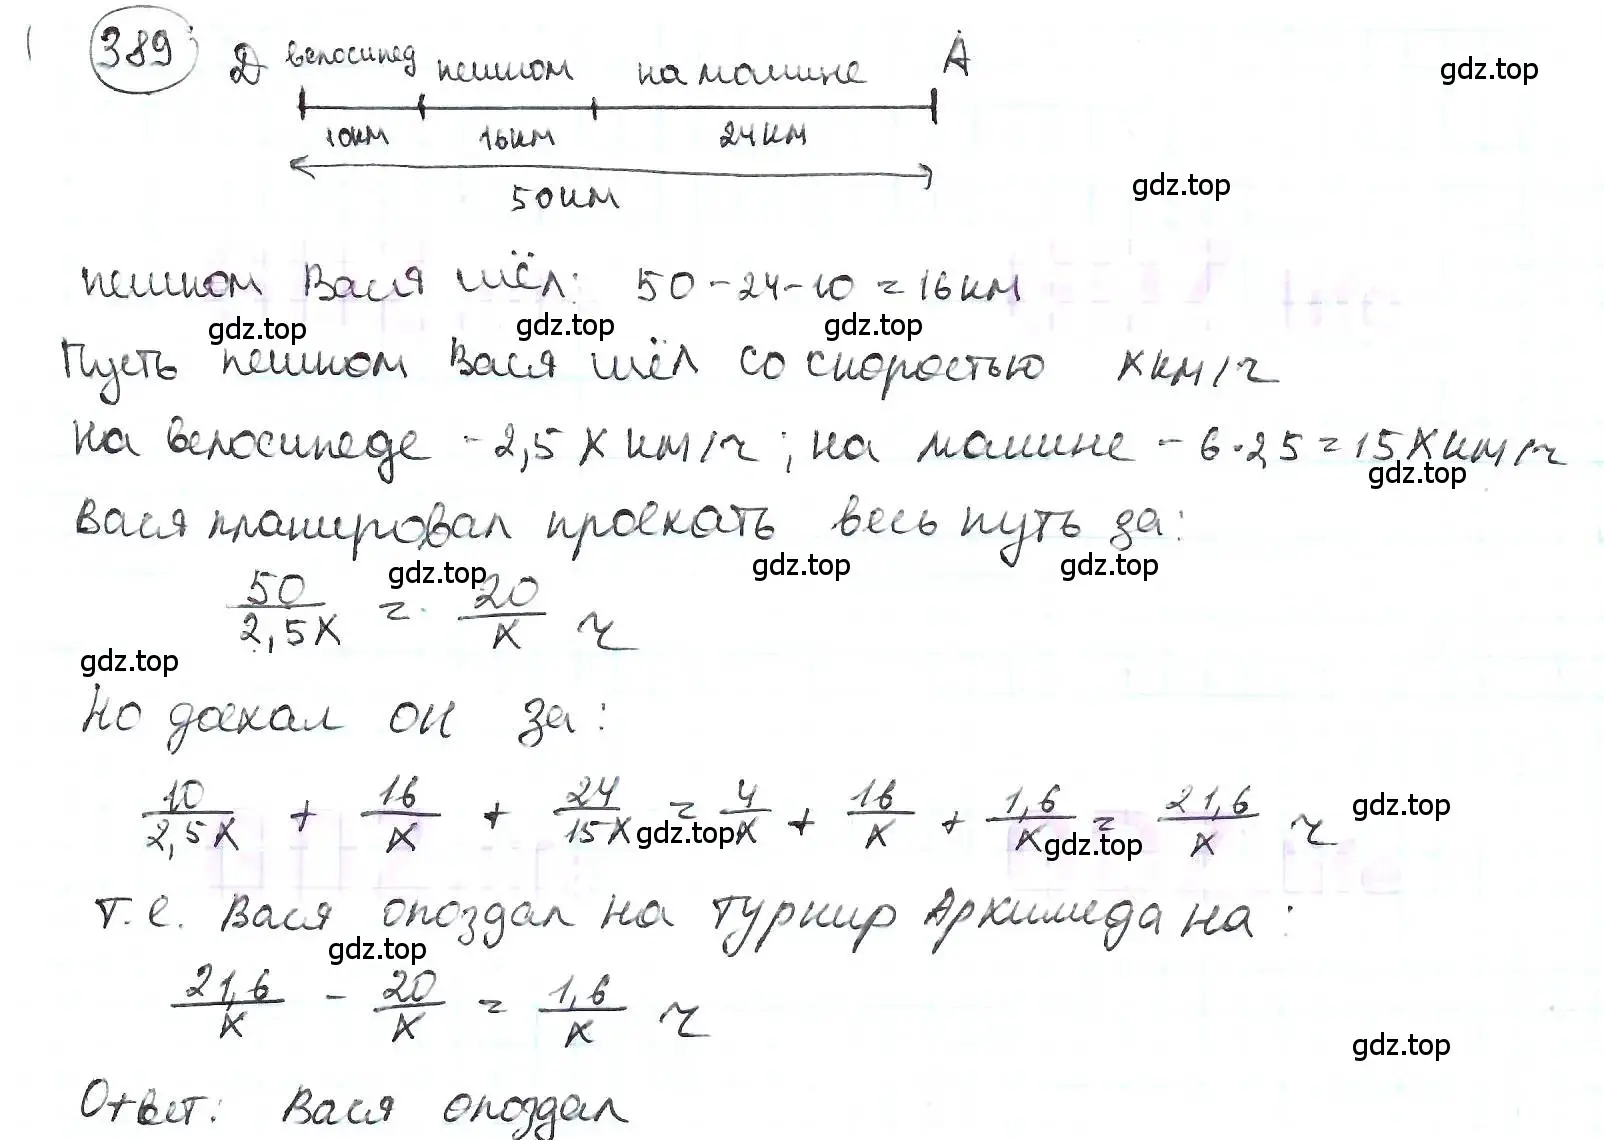 389
Д велосипед пешком на машине А
10км 16км 24км
50км
gdz.top
gdz.top
пешком Вася шёл: 50-24-10=16км
gdz.top gdz.top gdz.top
Пусть пешком Вася шёл со скоростью xкм/ч
На велосипеде -2,5x км/ч; на машине -6·2,5=15xкм/ч
gdz.top
Вася планировал проехать весь путь за:
gdz.top gdz.top gdz.top
50/2,5x = 20/x ч
gdz.top
Но доехал он за:
10/2,5x + 16/x + 24/15x = 4/x + 16/x + 1,6/x = 21,6/x ч
gdz.top gdz.top gdz.top
т.е. Вася опоздал на турнир Архимеда на:
gdz.top
21,6/x - 20/x = 1,6/x ч
gdz.top
Ответ: Вася опоздал